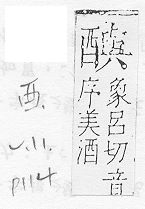 象呂切音
序美酒
酉.
v.11.
p114